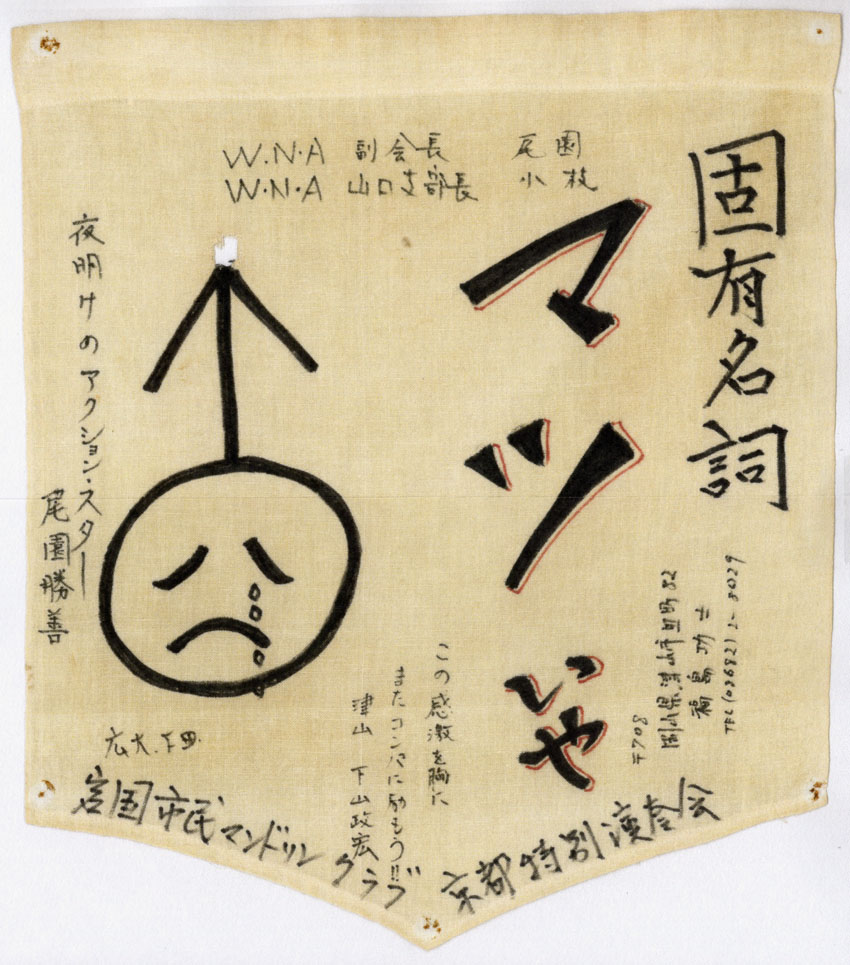 固有名詞
マツいや
W.N.A 副会長 尾園
W.N.A 山口支部長 小枝
夜明けのアクション・スター
尾園勝善
〒708
岡山県津山市田町82
福島功士
この感激を胸に
またコンパに励もう!!
津山 下山政宏
広大.下田.
岩国市民マンドリンクラブ
京都特別演奏会